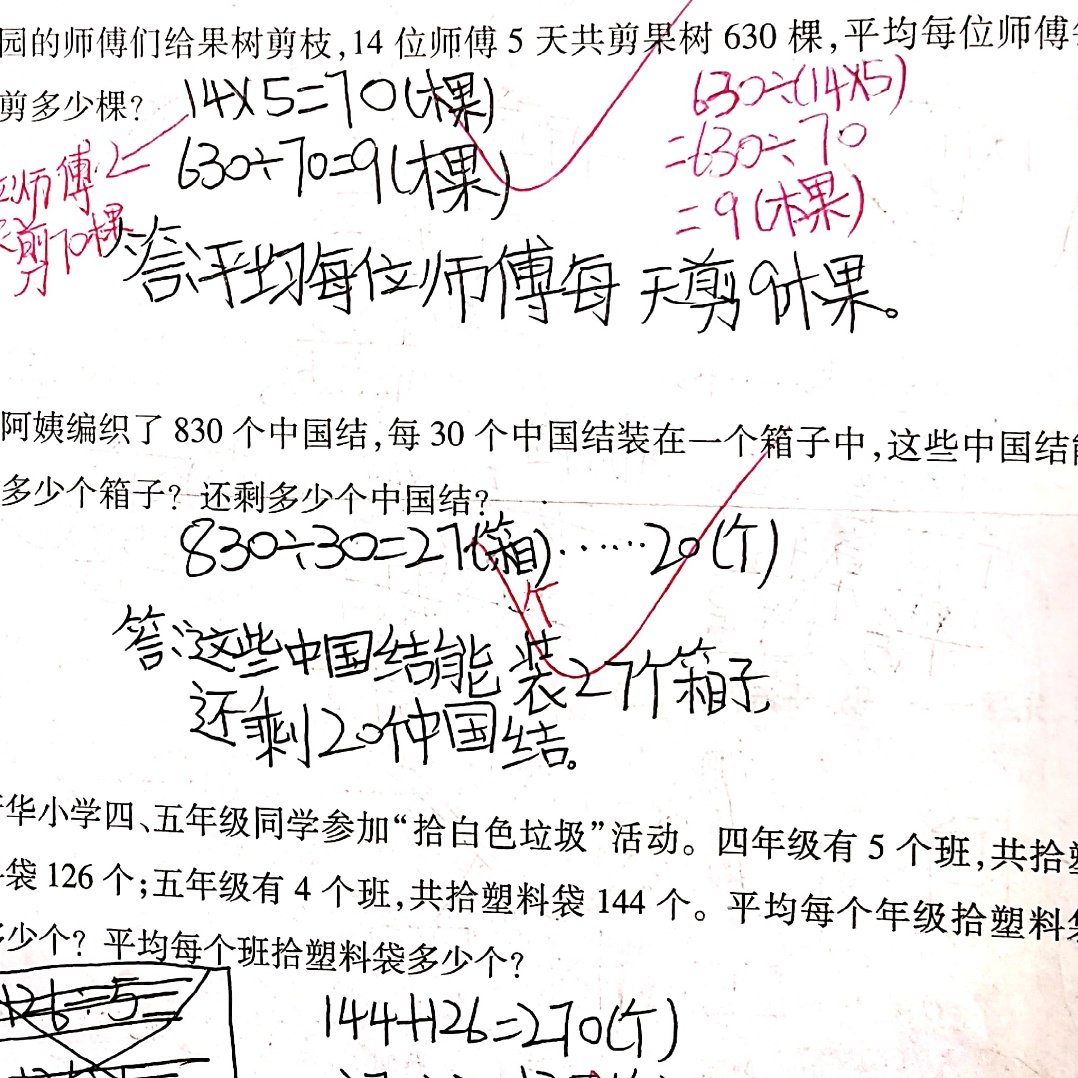 园的师傅们给果树剪枝,14 位师傅 5 天共剪果树 630 棵,平均每位师傅
剪多少棵?
14×5=70(棵)
630÷70=9(棵)
答:平均每位师傅每天剪9棵。
630÷(14×5)
=630÷70
=9(棵)
师傅
剪70棵
阿姨编织了 830 个中国结,每 30 个中国结装在一个箱子中,这些中国结
多少个箱子? 还剩多少个中国结?
830÷30=27(箱)……20(个)
个
答:这些中国结能装27个箱子,
还剩20个中国结。
华小学四、五年级同学参加“拾白色垃圾”活动。四年级有 5 个班,共拾
袋 126 个;五年级有 4 个班,共拾塑料袋 144 个。平均每个年级拾塑料
少个? 平均每个班拾塑料袋多少个?
126÷5=
144+126=270(个)